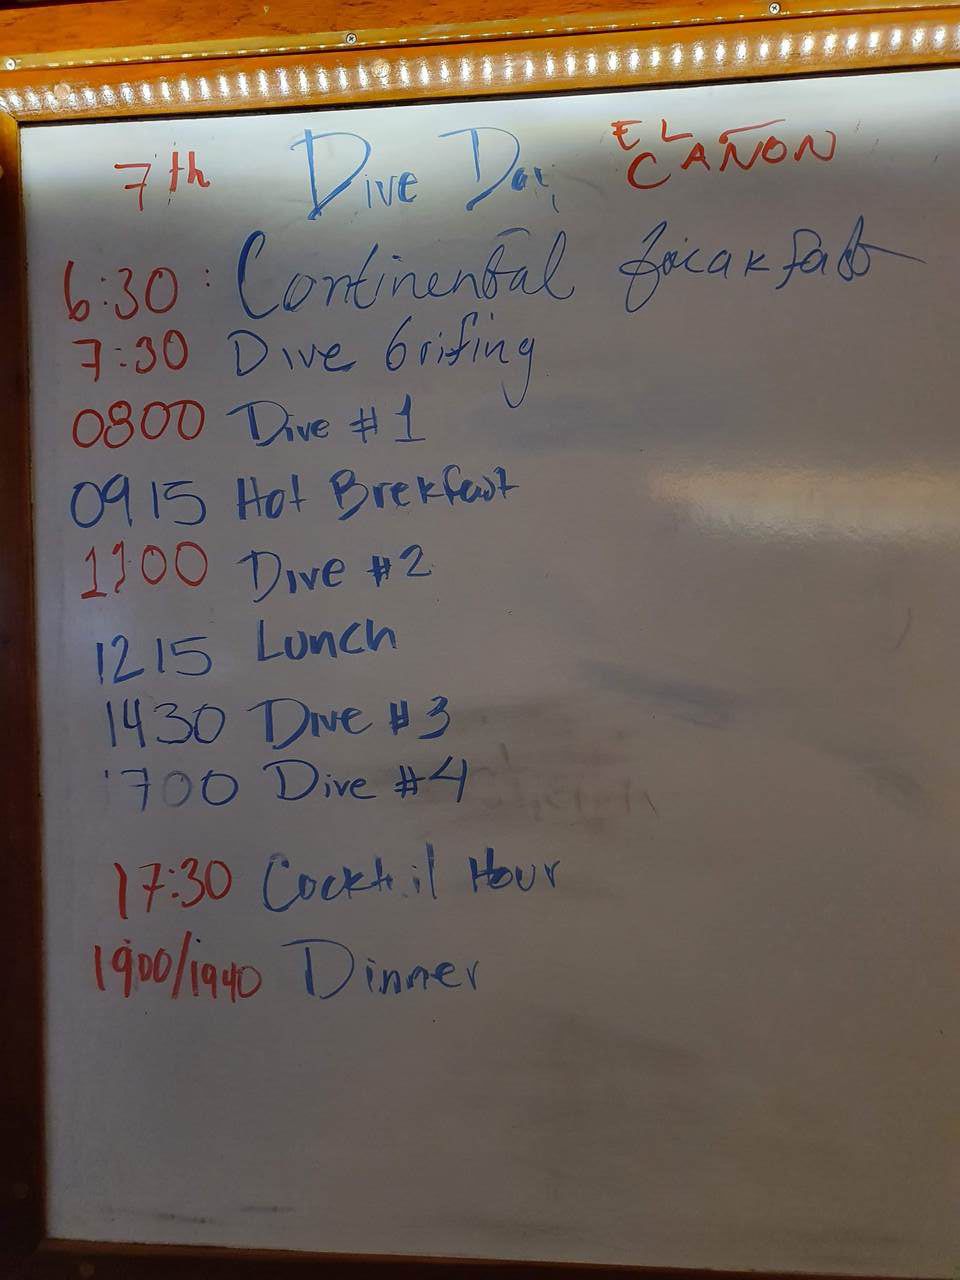 7th Dive Day EL CAÑON
6:30: Continental breakfast
7:30 Dive brifing
0800 Dive #1
0915 Hot Brekfast
1100 Dive #2
1215 Lunch
1430 Dive #3
1700 Dive #4
17:30 Cocktail Hour
1900/1940 Dinner